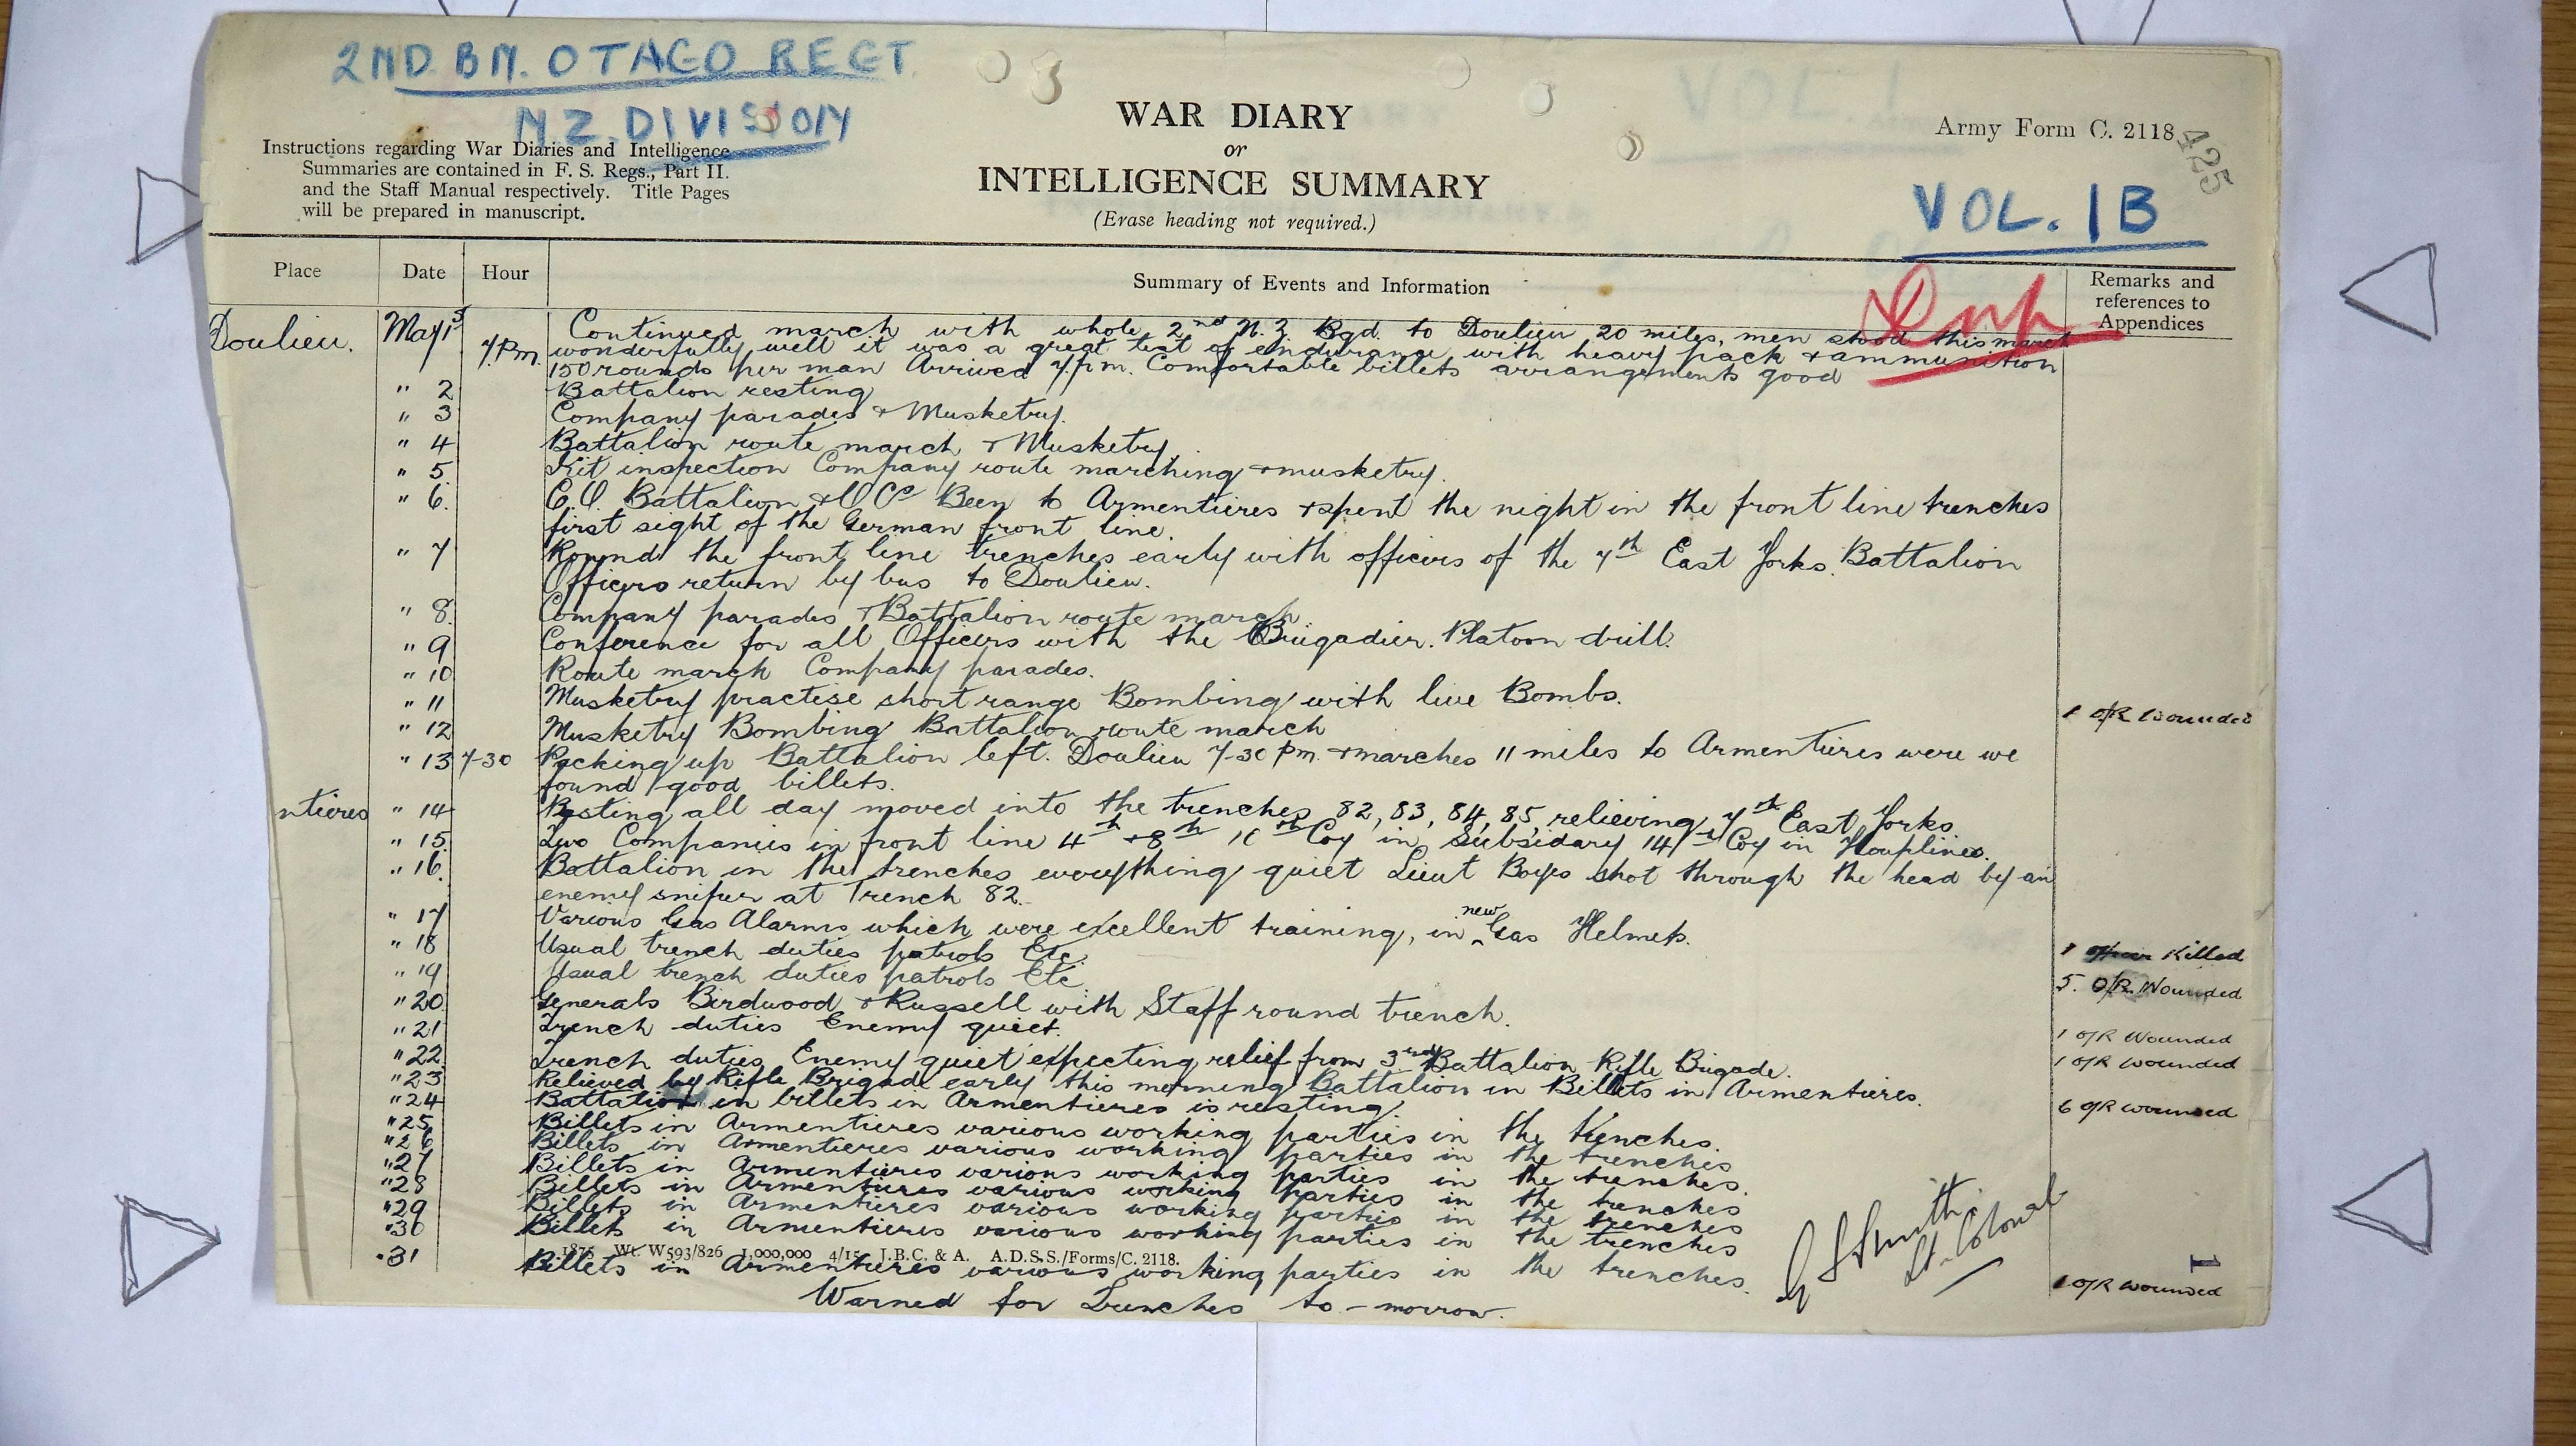 2ND. BN. OTAGO REGT.
N.Z. DIVISION
Instructions regarding War Diaries and Intelligence
Summaries are contained in F. S. Regs., Part II.
and the Staff Manual respectively. Title Pages
will be prepared in manuscript.
WAR DIARY
or
INTELLIGENCE SUMMARY
(Erase heading not required.)
Army Form C. 2118
425
VOL. 1B
Place Date Hour Summary of Events and Information Remarks and references to Appendices
Doulieu. May 1st Continued march with whole 2nd N.Z. Bgd. to Doulieu 20 miles, men stood this march
7 P.m. wonderfully well it was a great test of endurance with heavy pack & ammunition
150 rounds per man Arrived 7 p.m. Comfortable billets arrangements good
" 2 Battalion resting
" 3 Company parades & Musketry.
" 4 Battalion route march & Musketry.
" 5 Kit inspection Company route marching & musketry.
" 6. C.O. Battalion & Been to Armentieres & spent the night in the front line trenches
first sight of the German front line.
" 7 Round the front line trenches early with officers of the 7th East Yorks. Battalion
Officers return by bus to Doulieu.
" 8. Company parades & Battalion route march
" 9 Conference for all Officers with the Brigadier. Platoon drill.
" 10 Route march Company parades.
" 11 Musketry practise short range Bombing with live Bombs.
" 12 Musketry Bombing Battalion route march 1 O/R Wounded
" 13 7-30 Packing up Battalion left. Doulieu 7-30 Pm. & marches 11 miles to Armentieres were we
found good billets.
ntieres " 14 Resting all day moved into the trenches 82, 83, 84, 85, relieving 7th East Yorks.
" 15. Two Companies in front line 4th & 8th 10th Coy in Subsidary 14th Coy in Houplines.
" 16. Battalion in the trenches everything quiet Lieut Boyes shot through the head by an
enemy sniper at Trench 82.
" 17 Various Gas Alarms which were excellent training, in new Gas Helmets.
" 18 Usual trench duties patrols Etc. 1 Officer Killed
" 19 Usual trench duties patrols Etc 5. O/R. Wounded
" 20 Generals Birdwood & Russell with Staff round trench.
" 21 Trench duties Enemy quiet. 1 O/R Wounded
" 22 Trench duties Enemy quiet expecting relief from 3rd Battalion Rifle Brigade. 1 O/R wounded
" 23 Relieved by Rifle Brigade early this morning Battalion in Billets in Armentieres.
" 24 Battalion in billets in Armentieres is resting. 6 O/R wounded
" 25 Billets in Armentieres various working parties in the trenches.
" 26 Billets in Armentieres various working parties in the trenches
" 27 Billets in Armentieres various working parties in the trenches.
" 28 Billets in Armentieres various working parties in the trenches
" 29 Billets in Armentieres various working parties in the trenches
" 30 Billets in Armentieres various working parties in the trenches
1875 Wt. W593/826 1,000,000 4/15 J.B.C. & A. A.D.S.S./Forms/C. 2118.
" 31 Billets in Armentieres various working parties in the trenches. 1 O/R wounded
Warned for Trenches to-morrow.
Smith
Lt. Colonel
1